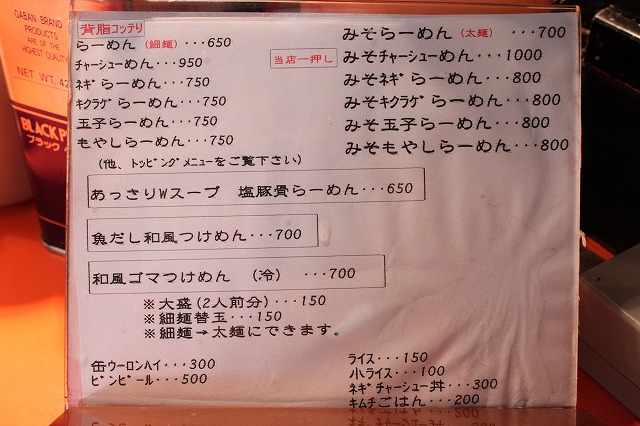 GABAN BRAND
PRODUCTS
ARE OF THE
HIGHEST QUALITY
NET WT. 42
BLACK P
ブラック
背脂コッテリ
らーめん（細麺）・・・650
チャーシューめん・・・950
ネギらーめん・・・750
キクラゲらーめん・・・750
玉子らーめん・・・750
もやしらーめん・・・750
（他、トッピングメニューをご覧下さい）
当店一押し
みそらーめん（太麺） ・・・700
みそチャーシューめん・・・1000
みそネギらーめん・・・800
みそキクラゲらーめん・・・800
みそ玉子らーめん・・・800
みそもやしらーめん・・・800
あっさりWスープ 塩豚骨らーめん・・・650
魚だし和風つけめん・・・700
和風ゴマつけめん （冷） ・・・700
※大盛（2人前分）・・・150
※細麺替玉・・・150
※細麺→太麺にできます。
缶ウーロンハイ・・・300
ビンビール・・・500
ライス・・・150
小ライス・・・100
ネギチャーシュー丼・・・300
キムチごはん・・・200